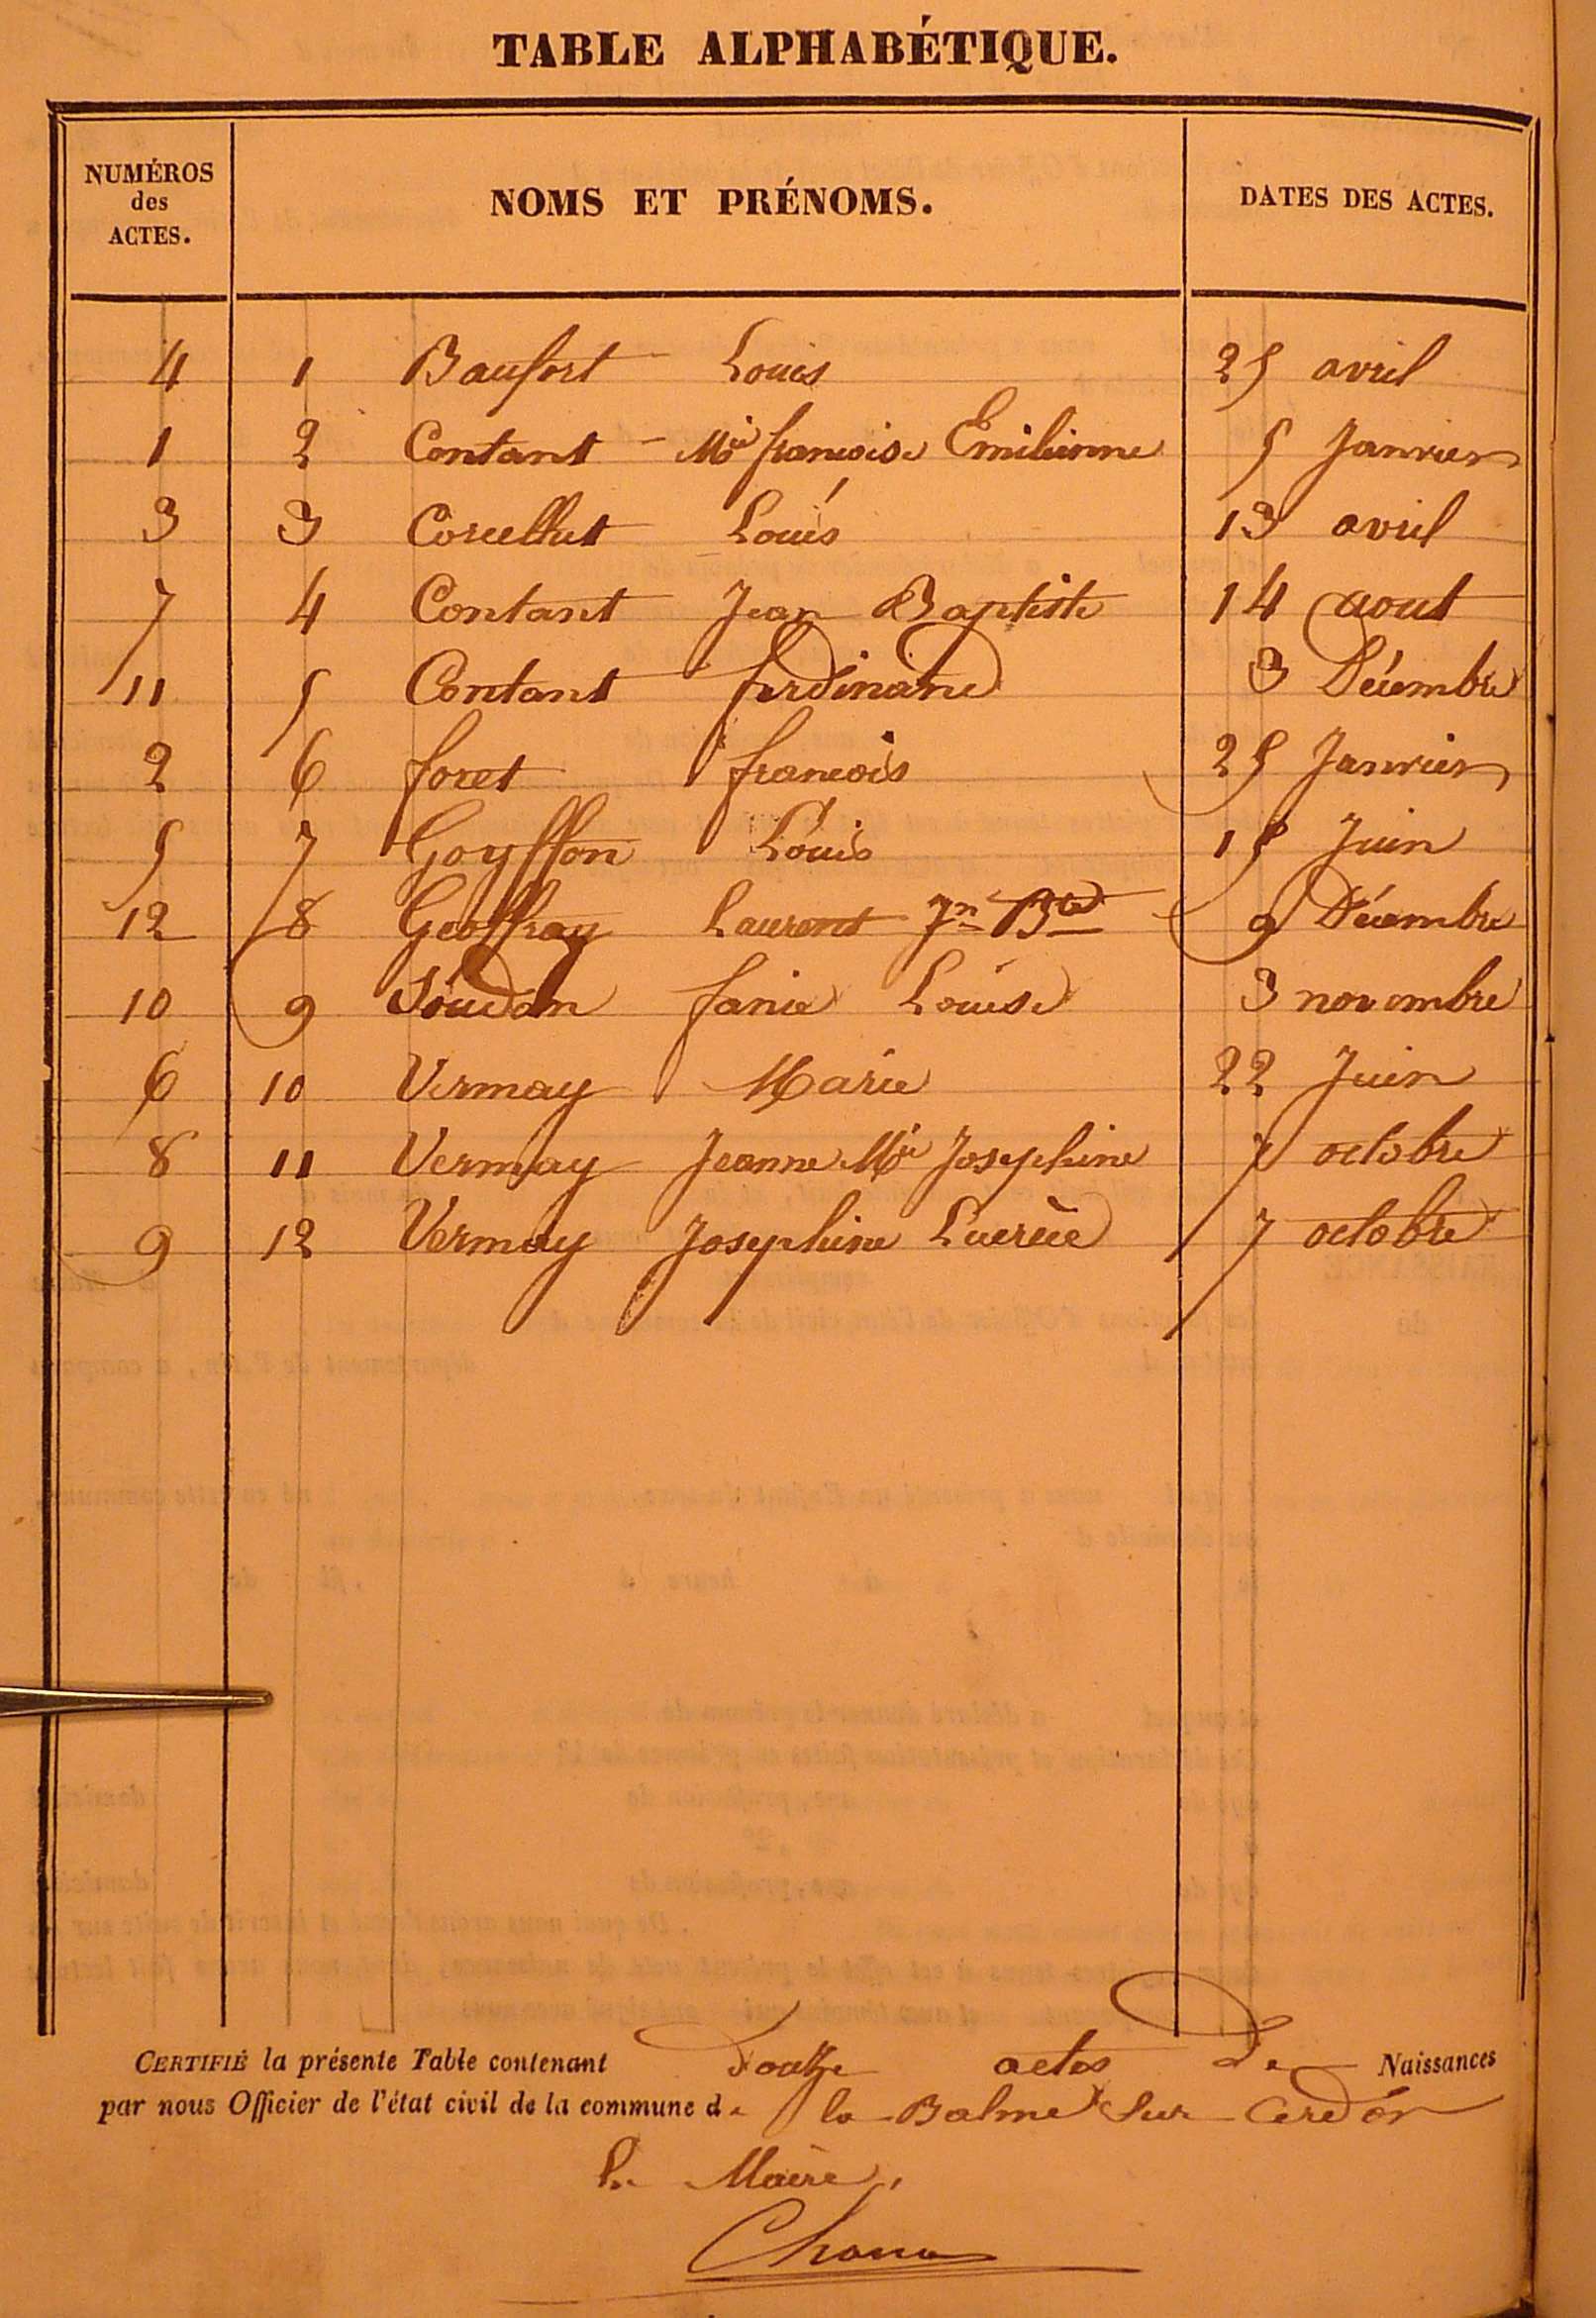 TABLE ALPHABÉTIQUE.
NUMÉROS des ACTES. NOMS ET PRÉNOMS. DATES DES ACTES.
4 1 Baufort Louis 25 avril
1 2 Contant Mie francoise Emilienne 5 Janvier
3 3 Louis 13 avril
7 4 Contant Jean Baptiste 14 aout
11 5 Contant ferdinand 3 Décembre
2 6 foret francois 25 Janvier
5 7 Goyffon Louis 15 Juin
12 8 Geoffray Laurent Jn Bte 9 Décembre
10 9 Soudan fanie Louise 3 novembre
6 10 Vermay Marie 22 Juin
8 11 Vermay Jeanne Mie Josephine 7 octobre
9 12 Vermay Josephine Lucrèce 7 octobre
CERTIFIÉ la présente Table contenant Douze actes De Naissances
par nous Officier de l'état civil de la commune de la Balme Sur Cerdon
Le Maire,